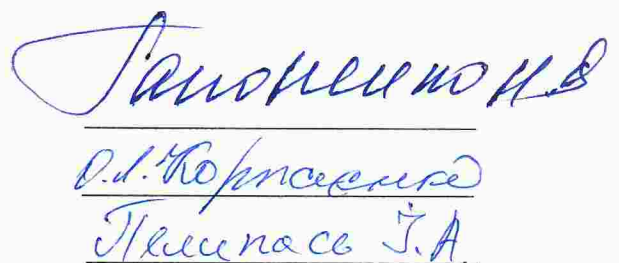 Гапоненко Н.В
О.Л. Корнаєнко
Пелипась І.А.